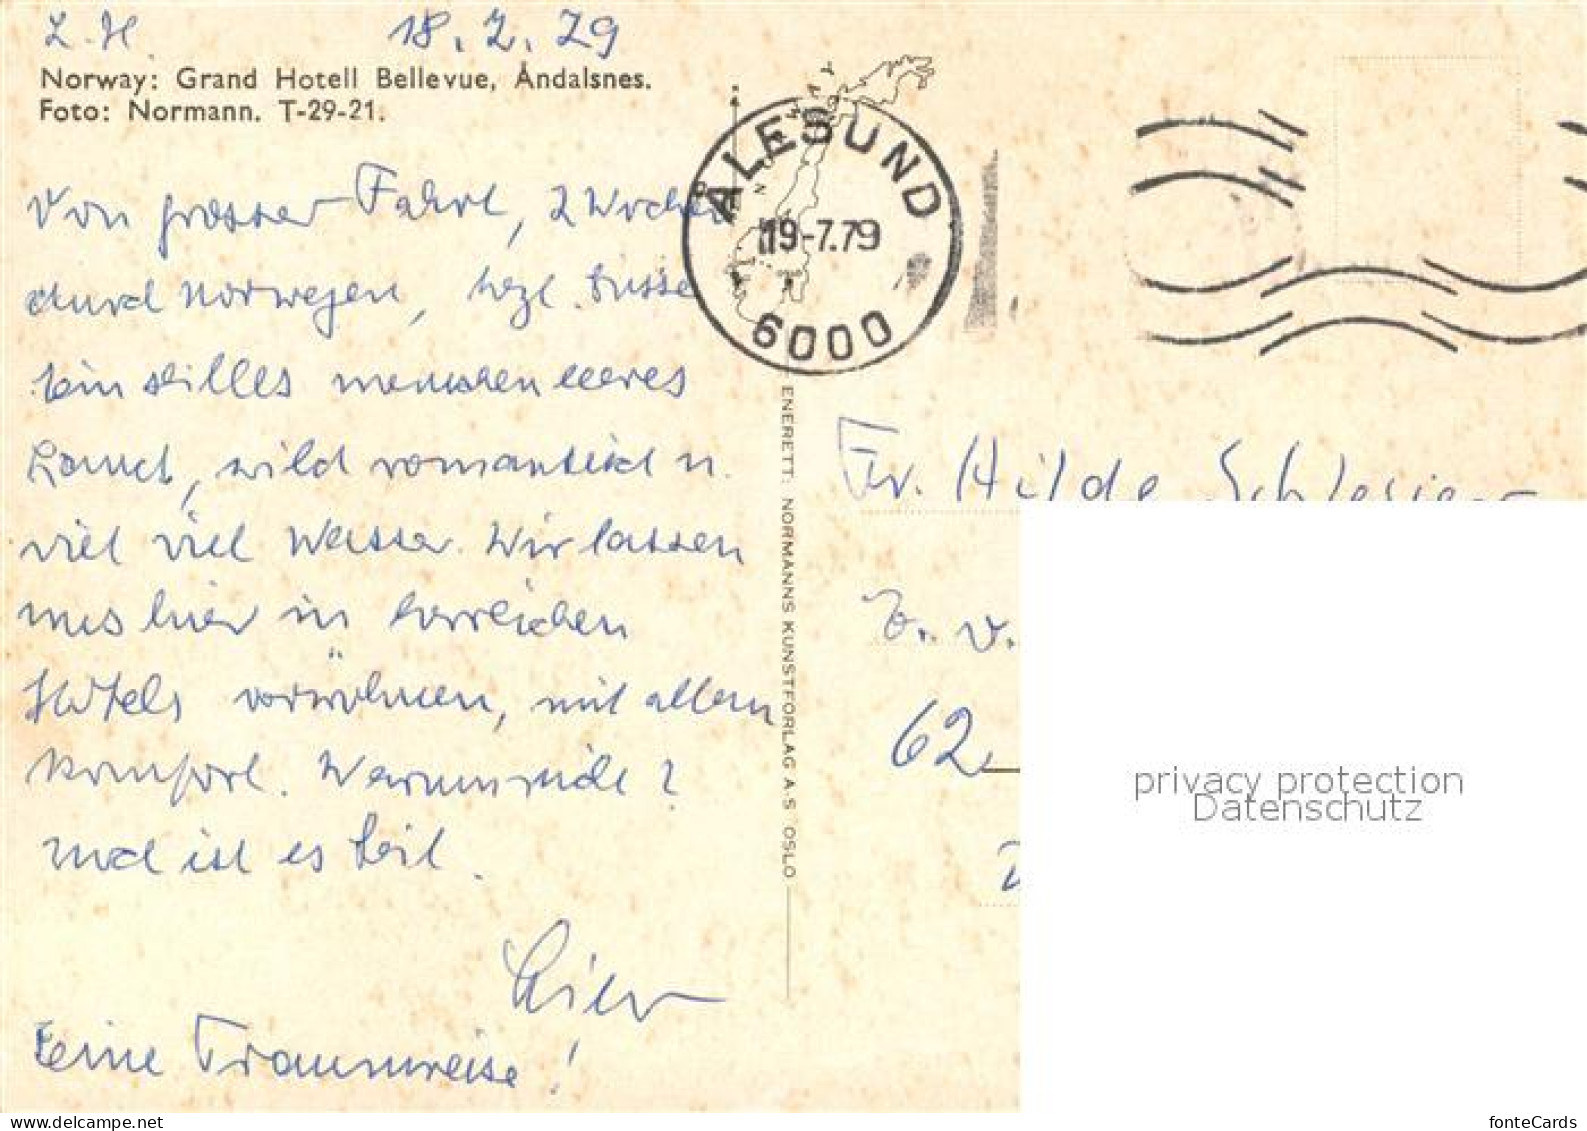 L. H. 18.7.79
Norway: Grand Hotell Bellevue, Åndalsnes.
Foto: Normann. T-29-21.
Von grosser Fahrt, 2 Wochen
durch Norwegen, herzl. Grüsse
Ein stilles menschenleeres
Land, wild romantisch u.
viel viel Wasser. Wir lassen
uns hier in herrlichen
Hotels verwöhnen, mit allem
Komfort. Warum nicht?
und ist es
Eine Traumreise!
ÅLESUND
19-7.79
6000
NORGE
ENERETT: NORMANNS KUNSTFORLAG A.S OSLO
Fr. Hilde Schlesier
v.
62
privacy protection
Datenschutz
fonteCards